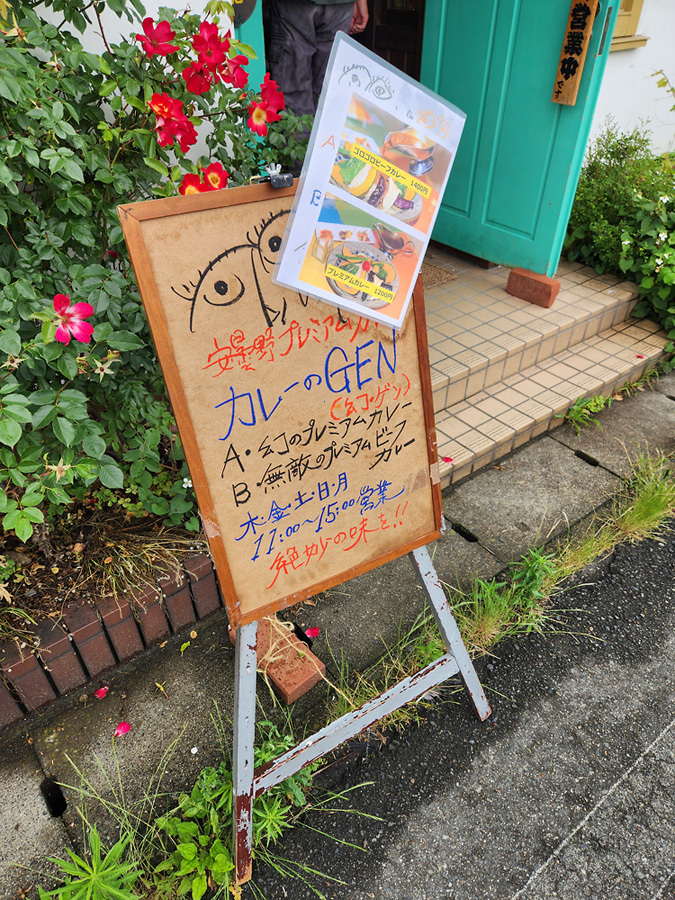 営業中
です
A
コロコロビーフカレー 1400円
B
プレミアムカレー 1200円
安曇野プレミアムカ
カレーのGEN
(幻・ゲン)
A・幻のプレミアムカレー
B・無敵のプレミアムビーフ
カレー
木・金・土・日・月
11:00〜15:00 営業
絶妙の味を!!